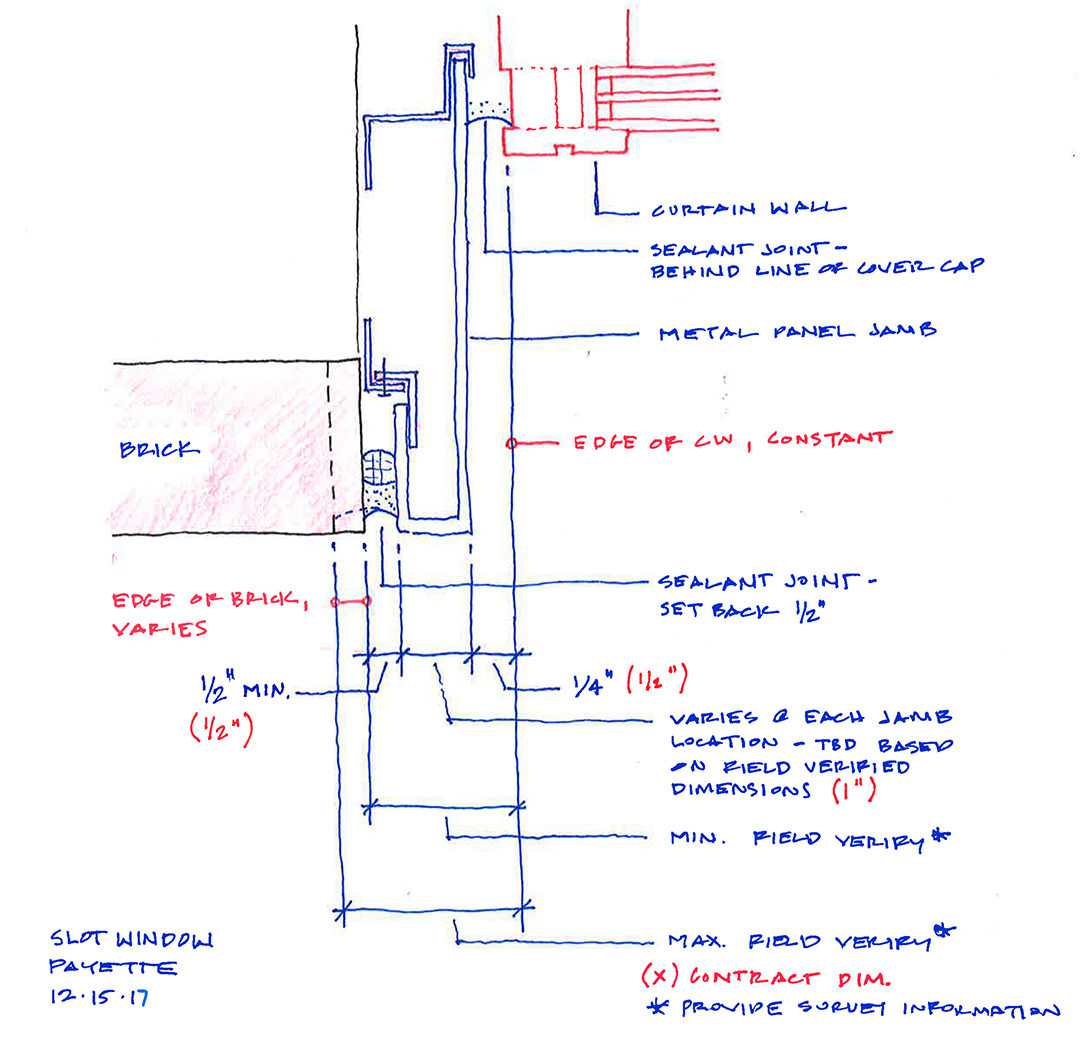 CURTAIN WALL
SEALANT JOINT -
BEHIND LINE OF COVER CAP
METAL PANEL JAMB
BRICK
EDGE OF CW, CONSTANT
SEALANT JOINT -
SET BACK 1/2"
EDGE OF BRICK,
VARIES
1/2" MIN.
(1/2")
1/4" (1/2")
VARIES @ EACH JAMB
LOCATION - TBD BASED
ON FIELD VERIFIED
DIMENSIONS (1")
MIN. FIELD VERIFY*
MAX. FIELD VERIFY*
(X) CONTRACT DIM.
* PROVIDE SURVEY INFORMATION
SLOT WINDOW
PAYETTE
12.15.17